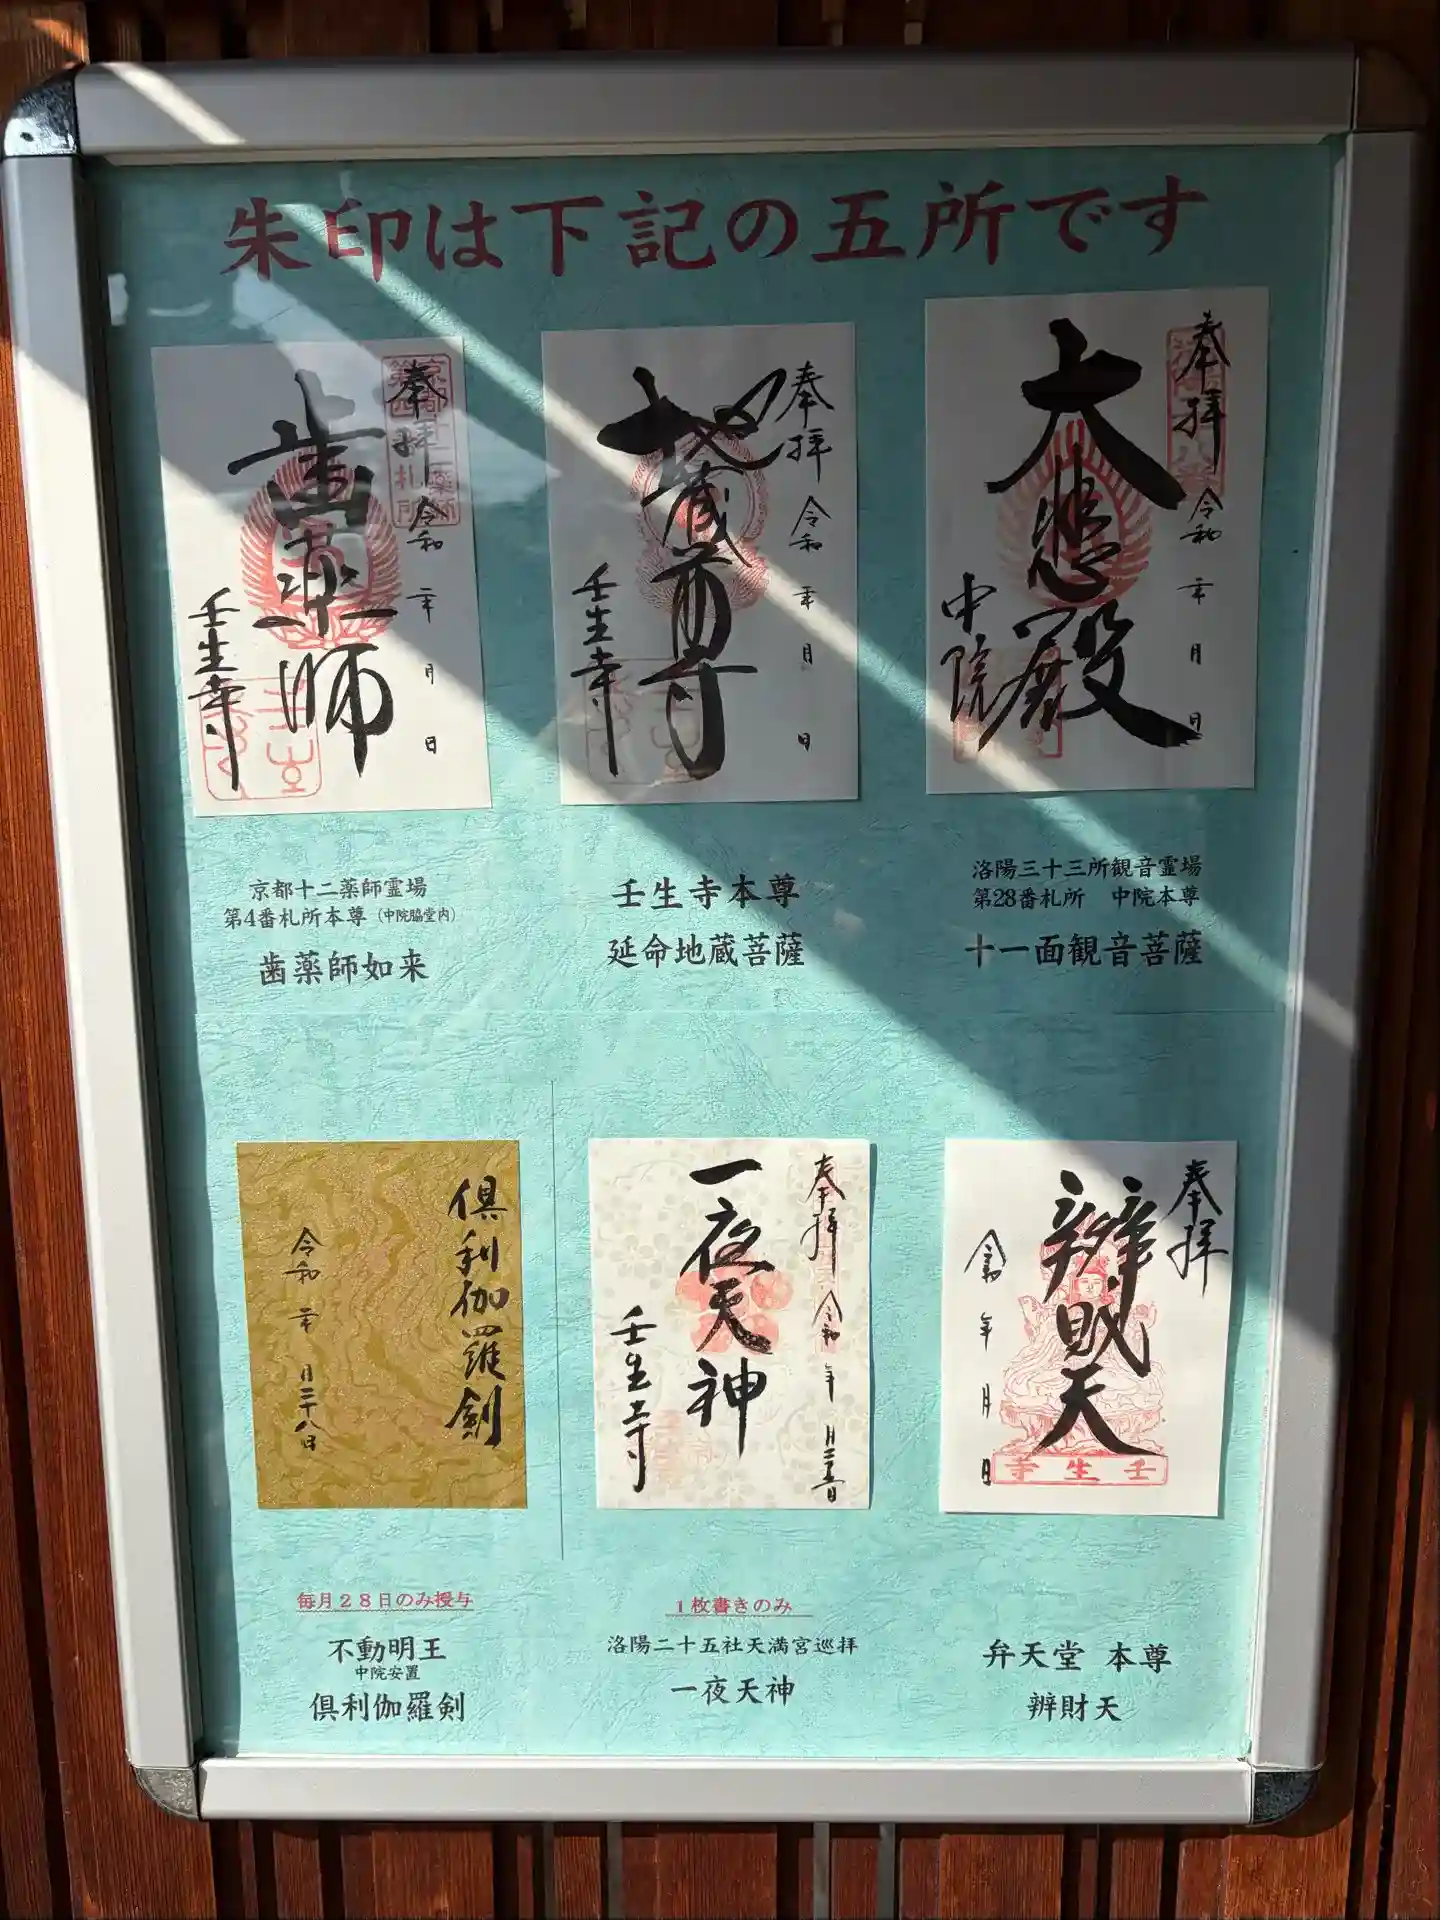 朱印は下記の五所です
奉拝
大悲殿
令和 年 月 日
中院
洛陽三十三所観音霊場
第28番札所 中院本尊
十一面観音菩薩
奉拝
地蔵尊
令和 年 月 日
壬生寺
壬生寺本尊
延命地蔵菩薩
奉拝
歯薬師
令和 年 月 日
壬生寺
京都十二薬師霊場
第4番札所本尊（中院脇堂内）
歯薬師如来
奉拝
辨財天
令和 年 月 日
壬生寺
弁天堂 本尊
辨財天
奉拝
一夜天神
令和 年 月二十五日
壬生寺
1枚書きのみ
洛陽二十五社天満宮巡拝
一夜天神
倶利伽羅剣
令和 年 月二十八日
毎月28日のみ授与
不動明王
中院安置
倶利伽羅剣